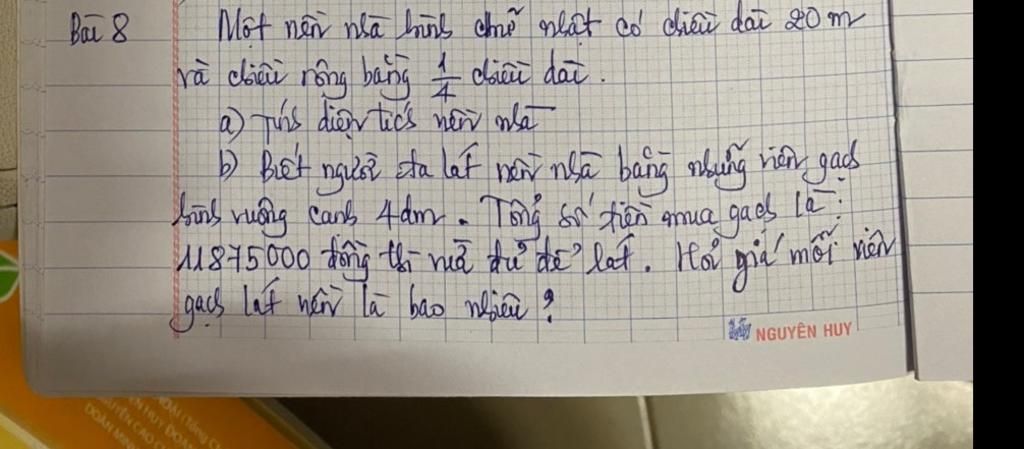 Bài 8 Một nền nhà hình chữ nhật có chiều dài 20 m
và chiều rộng bằng 1/4 chiều dài.
a) Tính diện tích nền nhà
b) Biết người ta lát nền nhà bằng những viên gạch
hình vuông cạnh 4dm. Tổng số tiền mua gạch là:
11875000 đồng thì vừa đủ để lát. Hỏi giá mỗi viên
gạch lát nền là bao nhiêu?
NGUYÊN HUY